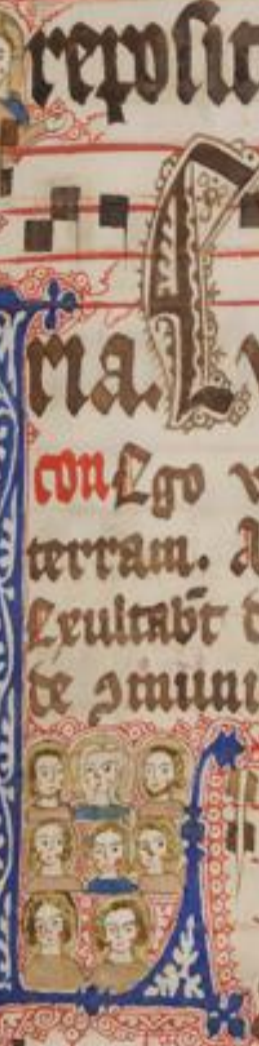 reposit
ria. E
con Ego v
terram. A
Exultabt d
de ɔmuni